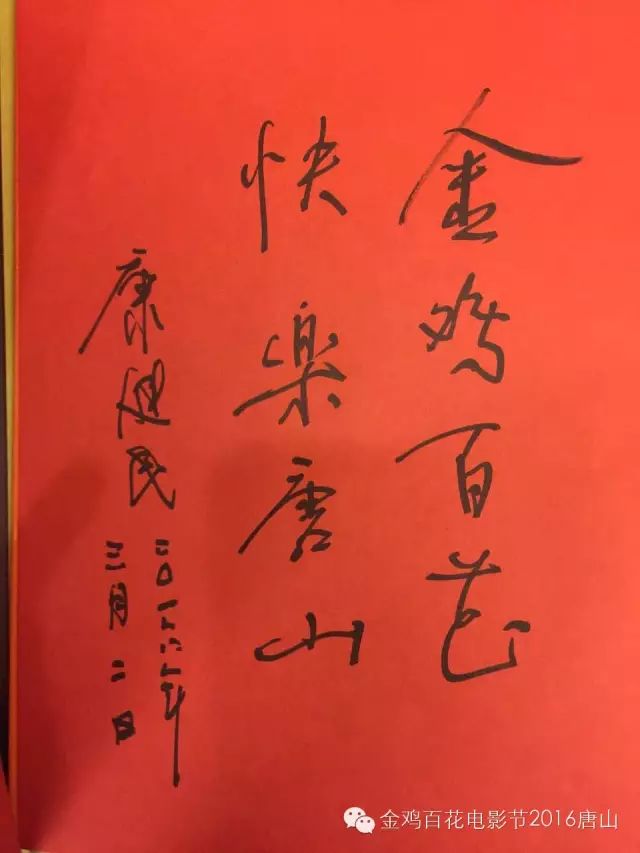 金鸡百花
快樂唐山
康健民
二〇一六年
三月二日
金鸡百花电影节2016唐山